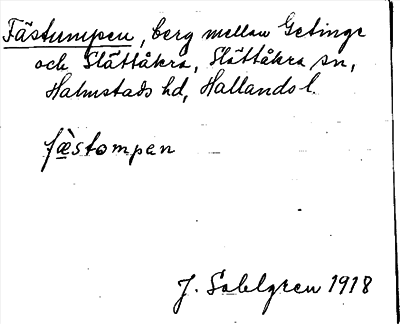 Fästumpen, berg mellan Getinge
och Slättåkra, Slättåkra sn,
Halmstads hd, Hallands l.
fæ̀stompen
J. Sahlgren 1918